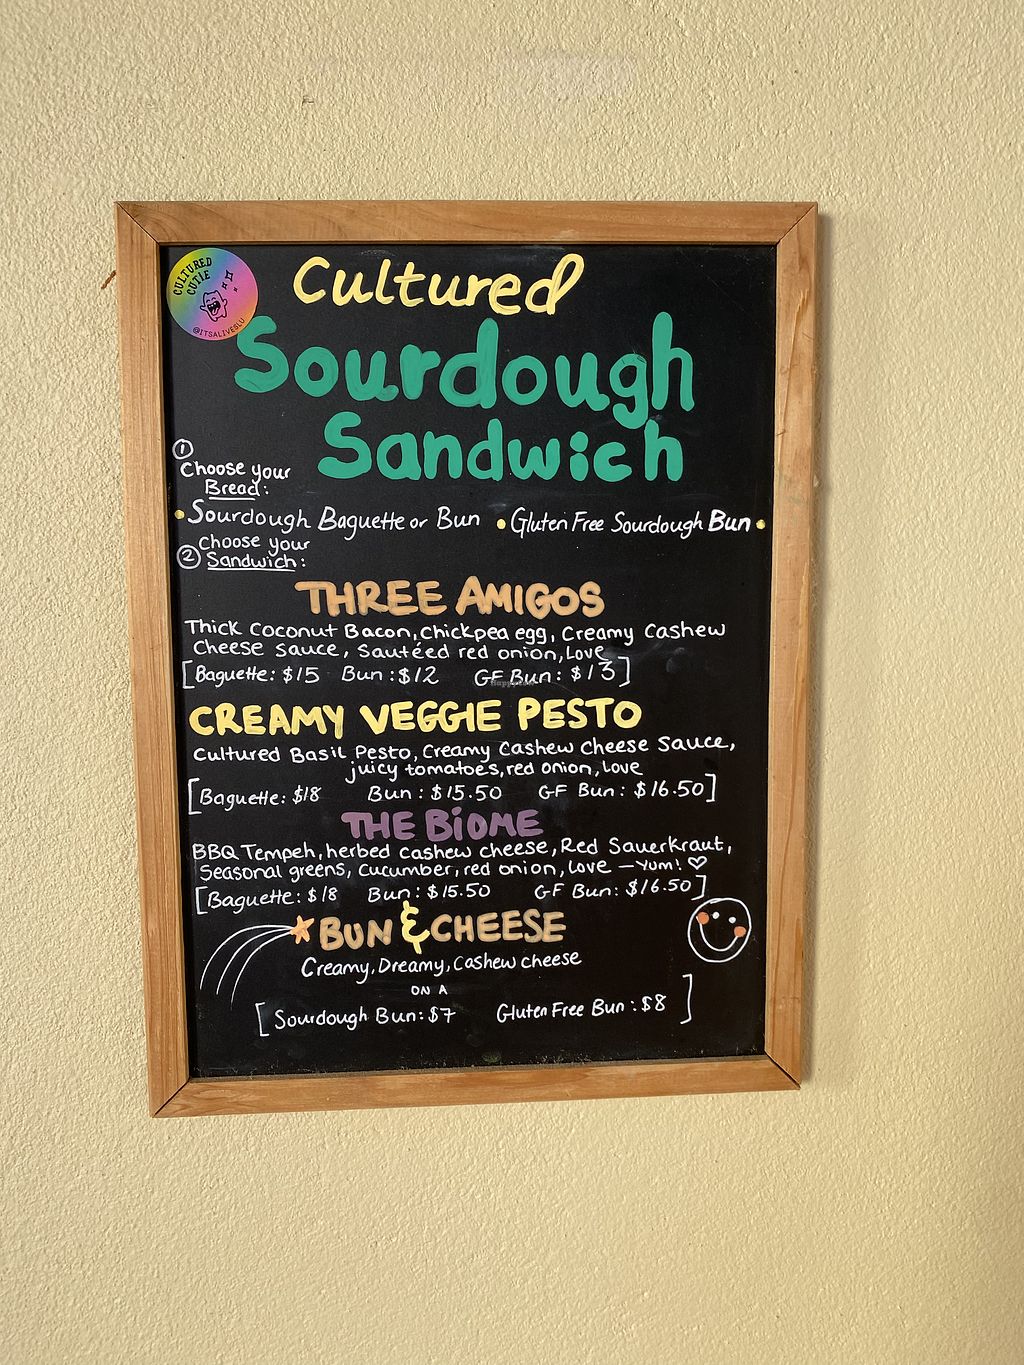 CULTURED
CUTIE
@ITSALIVESLU
Cultured
Sourdough
Sandwich
①
Choose your
Bread:
• Sourdough Baguette or Bun • Gluten Free Sourdough Bun •
② Choose your
Sandwich:
THREE AMIGOS
Thick Coconut Bacon, Chickpea egg, Creamy Cashew
Cheese Sauce, Sautéed red onion, Love
[Baguette: $15 Bun: $12 GF Bun: $13]
HappyCow
CREAMY VEGGIE PESTO
Cultured Basil Pesto, Creamy Cashew Cheese Sauce,
juicy tomatoes, red onion, Love
[Baguette: $18 Bun: $15.50 GF Bun: $16.50]
THE BIOME
BBQ Tempeh, herbed cashew cheese, Red Sauerkraut,
Seasonal greens, Cucumber, red onion, Love — Yum! ♡
[Baguette: $18 Bun: $15.50 GF Bun: $16.50]
BUN & CHEESE
Creamy, Dreamy, Cashew cheese
ON A
[Sourdough Bun: $7 Gluten Free Bun: $8]